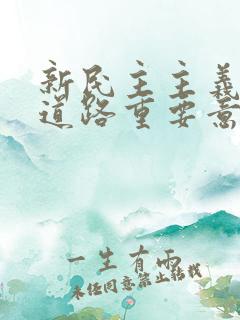 新民主主義
道路重要意
一生有雨
未经同意禁止转载